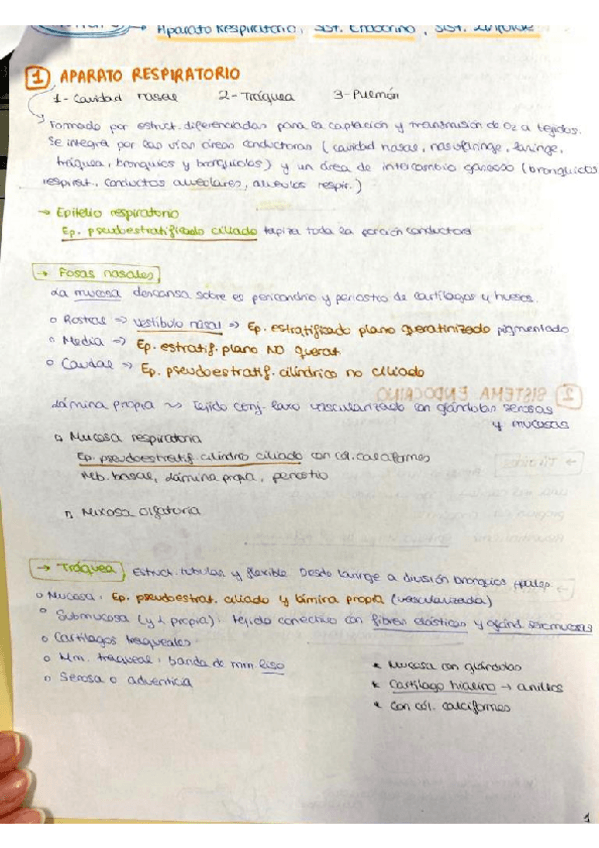 Aparato Respiratorio, Sist. Endocrino, Sist.
1 APARATO RESPIRATORIO
1- Cavidad nasal 2- Tráquea 3- Pulmón
Formado por estruct. diferenciadas para la captación y transmisión de O2 a tejidos.
Se integra por las vías aéreas conductoras (cavidad nasal, nasofaringe, laringe,
tráquea, bronquios y bronquiolos) y un área de intercambio gaseoso (bronquiolos
respirat, conductos alveolares, alveolos respir.)
→ Epitelio respiratorio
Ep. pseudoestratificado ciliado tapiza toda la porción conductora
→ Fosas nasales
La mucosa descansa sobre el pericondrio y periostio de cartílagos y huesos.
o Rostral => vestíbulo nasal => Ep. estratificado plano queratinizado pigmentado
o Media => Ep. estratif. plano NO querat
o Caudal => Ep. pseudoestratif. cilíndrico no ciliado
2 SISTEMA ENDOCRINO
Lámina propia ~> Tejido conj. laxo vascularizado con glándulas serosas
y mucosas
Mucosa respiratoria
Ep. pseudoestratif. cilindro ciliado con cél. caliciformes
basal, lámina propia, periostio
olfatoria
→ Tráquea, Estruct. tubular y flexible. Desde laringe a división bronquios
o Mucosa: Ep. pseudoestrat. ciliado y lámina propia (vascularizada)
o Submucosa (y L propia): tejido conectivo con fibras elásticas y gland. seromucosas
o Cartílagos traqueales
o Mm. traqueal: banda de mm liso
o Serosa o adventicia
* Mucosa con glándulas
* Cartílago hialino → anillos
* Con cél. caliciformes
1